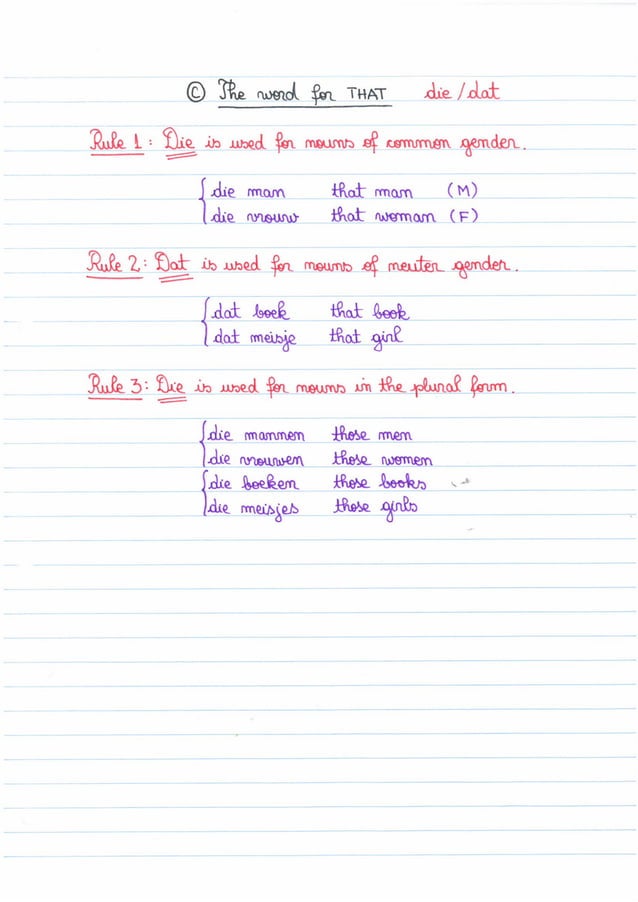 © The word for THAT die / dat
Rule 1 : Die is used for nouns of common gender.
die man that man (M)
die vrouw that woman (F)
Rule 2 : Dat is used for nouns of neuter gender.
dat boek that book
dat meisje that girl
Rule 3 : Die is used for nouns in the plural form.
die mannen those men
die vrouwen those women
die boeken those books
die meisjes those girls